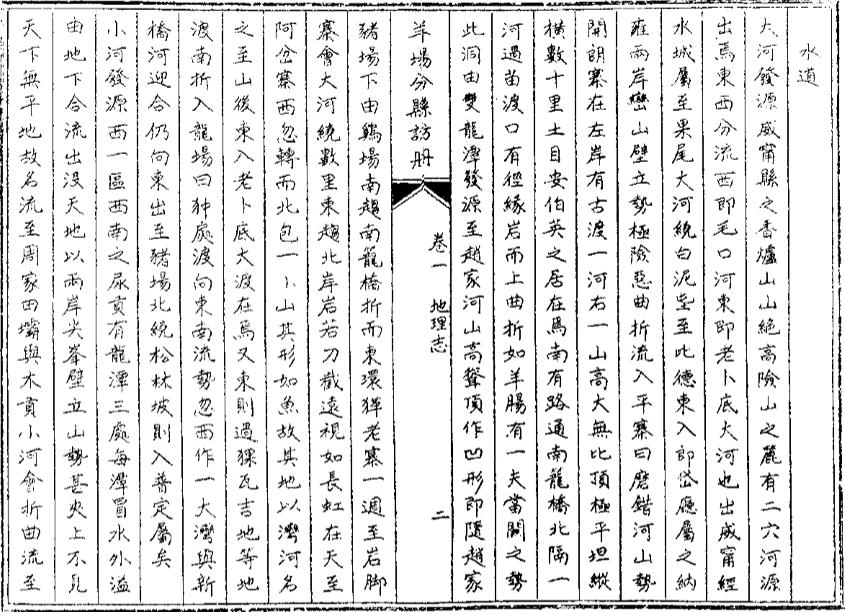 水道
大河發源威甯縣之香爐山山絕高險山之麓有二穴河源
出焉東西分流西即毛口河東即老卜底大河也出威甯經
水城屬至果尾大河統白泥㘭至此德東入郎岱廳屬之納
雍兩岸巒山壁立勢極險惡曲折流入平寨曰磨錯河山勢
開朗寨在左岸有古渡一河右一山高大無比頂極平坦縱
橫數十里土目安伯英之居在焉南有路通南龍橋北隔一
河過苗渡口有徑緣岩而上曲折如羊腸有一夫當關之勢
此洞由雙龍潭發源至趙家河山高聳頂作凹形即隨趙家
羊場分縣訪册
卷一 地理志
二
豬場下由鷄場南趨南籠橋折而東環㺐老寨一週至岩脚
寨會大河繞數里東趨北岸岩若刀截遠視如長虹在天至
阿岔寨西忽轉而北包一卜山其形如魚故其地以灣河名
之至山後東入老卜底大渡在焉又東則過猓瓦吉地等地
渡南折入龍場曰狆處渡向東南流勢忽西作一大灣與新
橋河迎合仍向東出至豬場北繞松林坡則入普定屬矣
小河發源西一區西南之尿貢有龍潭三處每潭冒水外溢
由地下合流出没天地以兩岸尖峯壁立山勢甚夾上不見
天下無平地故名流至周家田壩與木貢小河會折曲流至